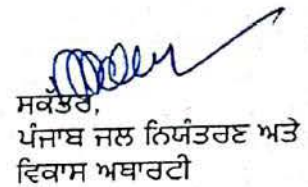 ਸਕੱਤਰ,
ਪੰਜਾਬ ਜਲ ਨਿਯੰਤਰਣ ਅਤੇ
ਵਿਕਾਸ ਅਥਾਰਟੀ